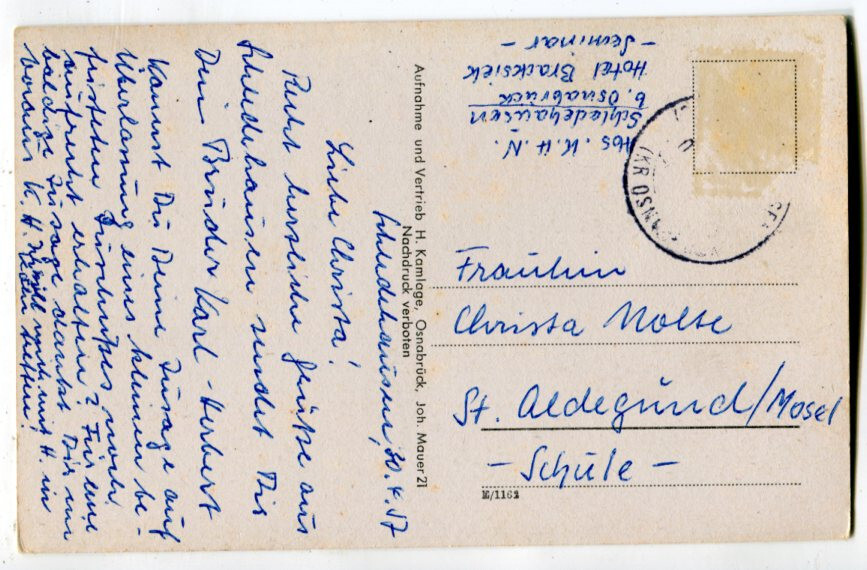 Schledehausen, 30.4.57
Liebe Christa!
Recht herzliche Grüße aus
Schledehausen sendet Dir
Dein Bruder Karl-Herbert
Kannst Du Deine Zusage auf
Überlassung eines kleinen be-
fristeten Zuschußes noch
aufrecht erhalten? Für eine
baldige Zusage dankt Dir im
voraus K. H.
Aufnahme und Vertrieb H. Kamlage, Osnabrück, Joh. Mauer 21
Nachdruck verboten
Abs. K.H.N.
Schledehausen
b. Osnabrück
Hotel Bracksiek
- Seminar -
(KR OSNABRÜCK)
Fräulein
Christa Nolte
St. Aldegund/Mosel
- Schule -
E/1162